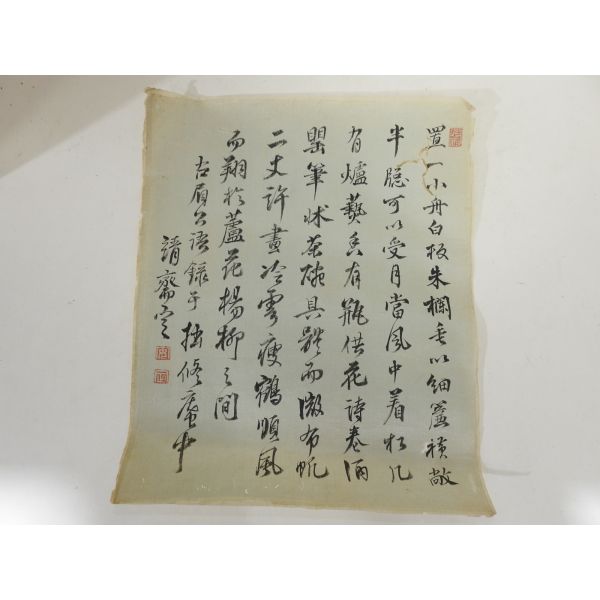 置一小舟白板朱欄垂以細簾橫敞
半隱可以受月當風中着棐几
有爐爇香有瓶供花詩卷酒
罌筆床茶碗具題而微布帆
二丈許畫冷雲瘦鶴順風
而翔於蘆花楊柳之間
古眉公語錄于拙修庵中
靖齋